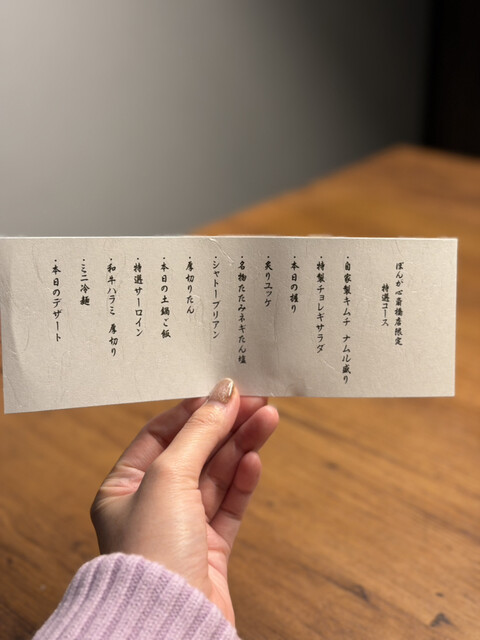 ぽんが心斎橋店限定
特選コース
・自家製キムチ ナムル盛り
・特製チョレギサラダ
・本日の握り
・炙りユッケ
・名物たたみネギたん塩
・シャトーブリアン
・厚切りたん
・本日の土鍋ご飯
・特選サーロイン
・和牛ハラミ 厚切り
・ミニ冷麺
・本日のデザート